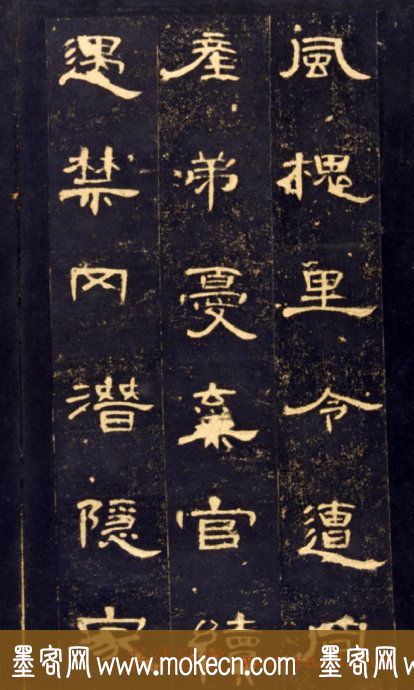 風槐里令遭同
產弟憂棄官續
遇禁网潛隱家
墨客网www.mokecn.com 墨客网